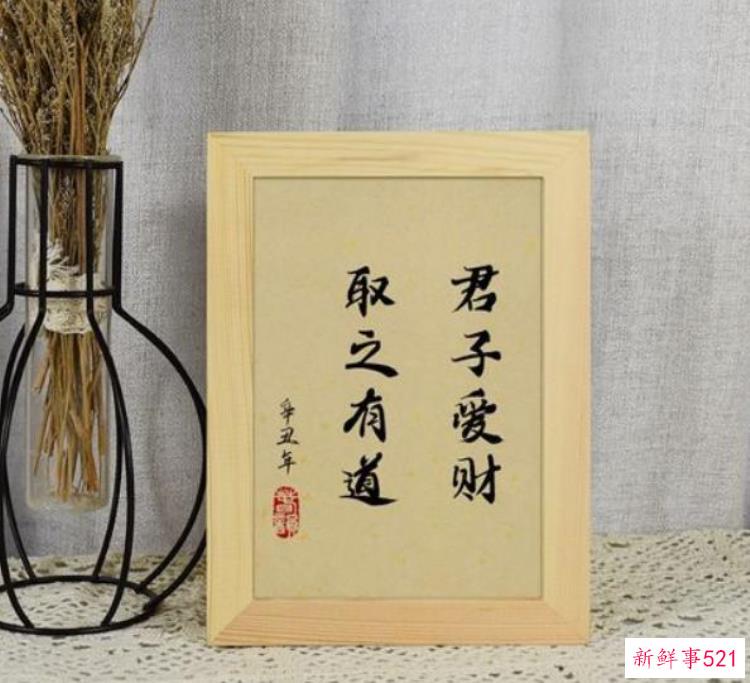 君子爱财
取之有道
辛丑年
新鲜事521